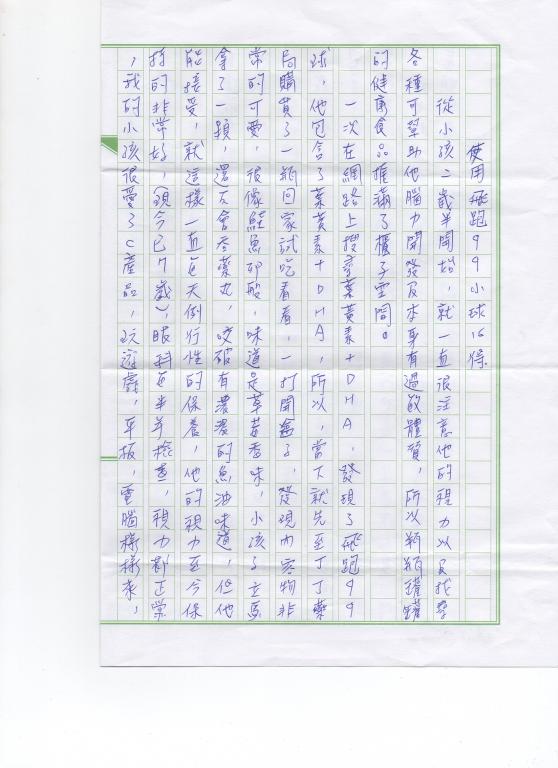 使用飛跑99小球心得
從小孩二歲半開始，就一直很注意他的視力以及找尋
各種可幫助他腦力開發及本身有過敏體質，所以瓶瓶罐罐
的健康食品堆滿了櫃子空間。
一次在網路上搜尋葉黃素+DHA，發現了飛跑99
球，他包含了葉黃素+DHA，所以，當下就先至丁丁藥
局購買了一瓶回家試吃看看，一打開盒子，發現內容物非
常的可愛，很像鮭魚卵般，味道是草莓香味，小孩子立馬
拿了一顆，還不會吞藥丸，咬破有濃濃的魚油味道，但他
能接受，就這樣一直每天例行性的保養，他的視力至今保
持的非常好，(現今已7歲)，眼科每半年檢查，視力都正常
，我的小孩很愛3C產品，玩遊戲，平板，電腦樣樣來，